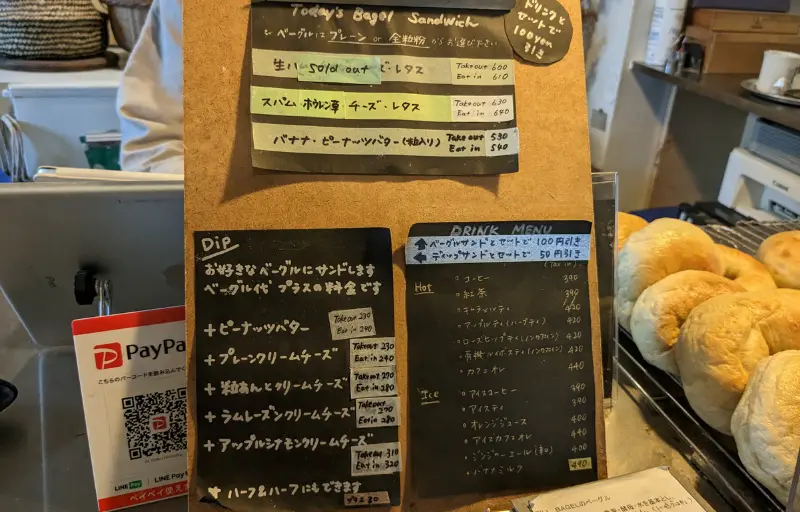 Today's Bagel Sandwich
ベーグルにプレーン or 全粒粉 からお選び下さい
ドリンクと
セットで
100yen
引き
生ハ sold out ズ・レタス Takeout 600
Eat in 610
スパム・ホウレン草・チーズ・レタス Takeout 630
Eat in 640
バナナ・ピーナッツバター(粒入り) Take out 530
Eat in 540
Dip
お好きなベーグルにサンドします
ベーグル代 プラスの料金です
+ピーナッツバター Take out 230
Eat in 240
+プレーンクリームチーズ Takeout 230
Eat in 240
+粒あんとクリームチーズ Takeout 270
Eat in 280
+ラムレーズンクリームチーズ Takeout 270
Eat in 280
+アップルシナモンクリームチーズ
Takeout 310
Eat in 320
★ ハーフ&ハーフにもできます
DRINK MENU
↑ベーグルサンドとセットで 100円引き
←ディップサンドとセットで 50円引き
(Tax in)
Hot
。コーヒー 390
。紅茶 390
。ローズヒップティ(ノンカフェイン) 420
。有機ルイボスティ(ノンカフェイン) 420
。カフェオレ 440
Ice
。アイスコーヒー 390
。アイスティ 390
。オレンジジュース 400
。アイスカフェオレ 440
。ジンジャーエール(辛口) 400
。バナナミルク 490
PayPa
こちらのバーコードを読み込んで
LINE Pay LINE Pay
ペイペイ使え
Canon
BAGELのベーグル